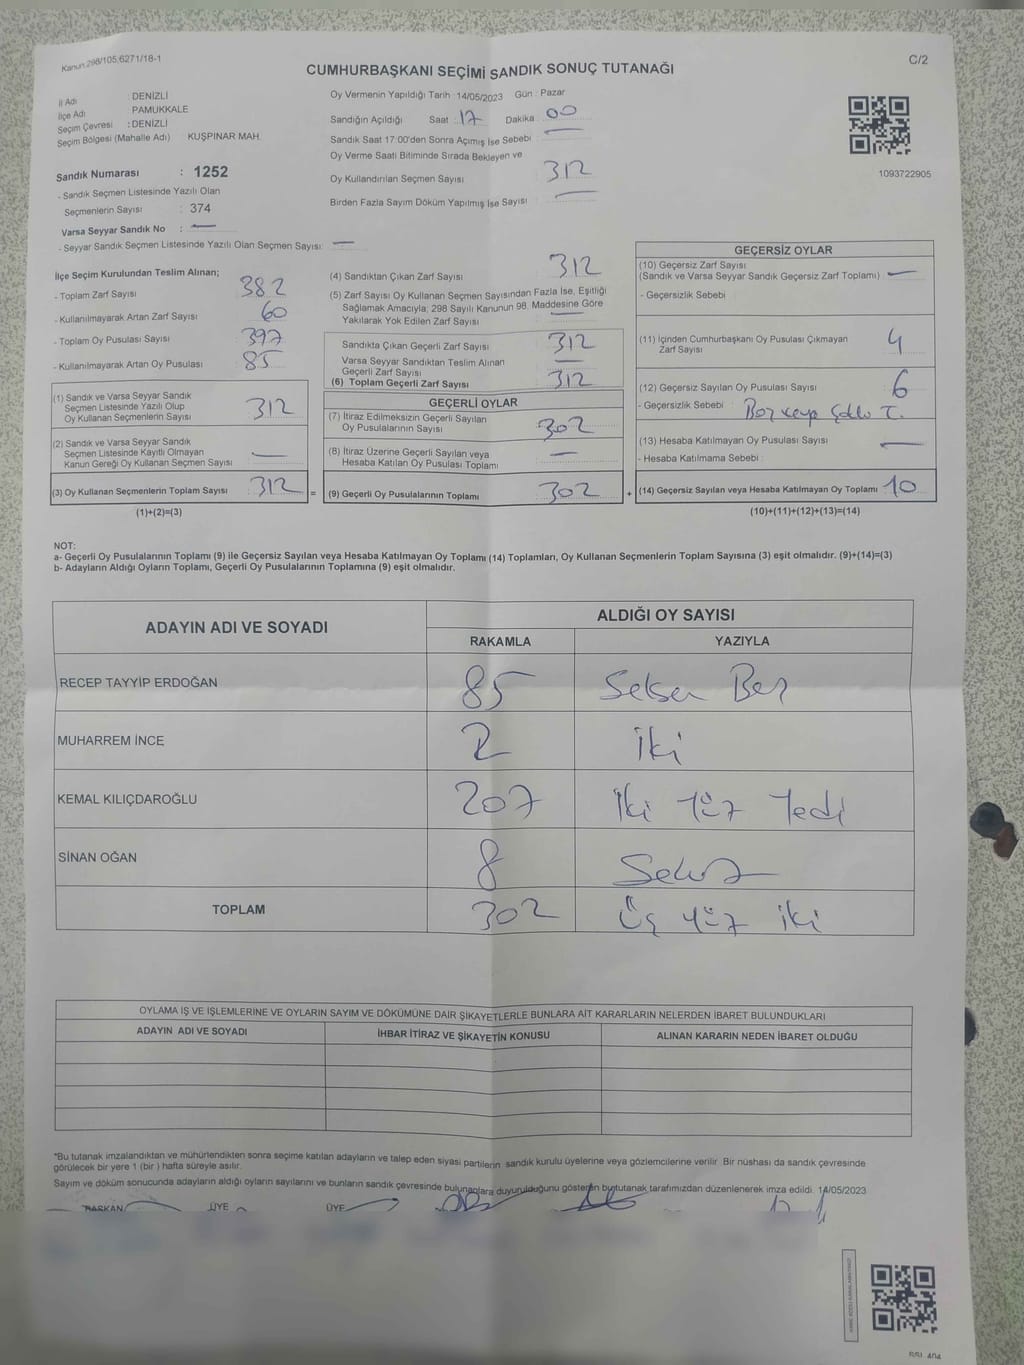 Kanun:298/105,6271/18-1
C/2
CUMHURBAŞKANI SEÇİMİ SANDIK SONUÇ TUTANAĞI
İl Adı : DENİZLİ
İlçe Adı PAMUKKALE
Seçim Çevresi : DENİZLİ
Seçim Bölgesi (Mahalle Adı) KUŞPINAR MAH.
Oy Vermenin Yapıldığı Tarih : 14/05/2023 Gün : Pazar
Sandığın Açıldığı Saat : 17 Dakika : 00
Sandık Saat 17:00'den Sonra Açımış İse Sebebi : —
Oy Verme Saati Bitiminde Sırada Bekleyen ve
Oy Kullandırılan Seçmen Sayısı : 312
Birden Fazla Sayım Döküm Yapılmış İse Sayısı : —
1093722905
Sandık Numarası : 1252
- Sandık Seçmen Listesinde Yazılı Olan
Seçmenlerin Sayısı : 374
Varsa Seyyar Sandık No : —
- Seyyar Sandık Seçmen Listesinde Yazılı Olan Seçmen Sayısı: —
İlçe Seçim Kurulundan Teslim Alınan;
- Toplam Zarf Sayısı 382
- Kullanılmayarak Artan Zarf Sayısı 60
- Toplam Oy Pusulası Sayısı 397
- Kullanılmayarak Artan Oy Pusulası 85
(1) Sandık ve Varsa Seyyar Sandık
Seçmen Listesinde Yazılı Olup
Oy Kullanan Seçmenlerin Sayısı 312
(2) Sandık ve Varsa Seyyar Sandık
Seçmen Listesinde Kayıtlı Olmayan
Kanun Gereği Oy Kullanan Seçmen Sayısı —
(3) Oy Kullanan Seçmenlerin Toplam Sayısı 312 =
(1)+(2)=(3)
(4) Sandıktan Çıkan Zarf Sayısı 312
(5) Zarf Sayısı Oy Kullanan Seçmen Sayısından Fazla İse, Eşitliği
Sağlamak Amacıyla; 298 Sayılı Kanunun 98. Maddesine Göre
Yakılarak Yok Edilen Zarf Sayısı —
Sandıkta Çıkan Geçerli Zarf Sayısı 312
Varsa Seyyar Sandıktan Teslim Alınan
Geçerli Zarf Sayısı —
(6) Toplam Geçerli Zarf Sayısı 312
GEÇERLİ OYLAR
(7) İtiraz Edilmeksizin Geçerli Sayılan
Oy Pusulalarının Sayısı 302
(8) İtiraz Üzerine Geçerli Sayılan veya
Hesaba Katılan Oy Pusulası Toplamı —
(9) Geçerli Oy Pusulalarının Toplamı 302 +
GEÇERSİZ OYLAR
(10) Geçersiz Zarf Sayısı
(Sandık ve Varsa Seyyar Sandık Geçersiz Zarf Toplamı) —
- Geçersizlik Sebebi :
(11) İçinden Cumhurbaşkanı Oy Pusulası Çıkmayan
Zarf Sayısı 4
(12) Geçersiz Sayılan Oy Pusulası Sayısı 6
- Geçersizlik Sebebi :
(13) Hesaba Katılmayan Oy Pusulası Sayısı —
- Hesaba Katılmama Sebebi :
(14) Geçersiz Sayılan veya Hesaba Katılmayan Oy Toplamı 10
(10)+(11)+(12)+(13)=(14)
NOT:
a- Geçerli Oy Pusulalarının Toplamı (9) ile Geçersiz Sayılan veya Hesaba Katılmayan Oy Toplamı (14) Toplamları, Oy Kullanan Seçmenlerin Toplam Sayısına (3) eşit olmalıdır. (9)+(14)=(3)
b- Adayların Aldığı Oyların Toplamı, Geçerli Oy Pusulalarının Toplamına (9) eşit olmalıdır.
ADAYIN ADI VE SOYADI ALDIĞI OY SAYISI
RAKAMLA YAZIYLA
RECEP TAYYİP ERDOĞAN 85 Seksen Beş
MUHARREM İNCE 2 İki
KEMAL KILIÇDAROĞLU 207 İki Yüz Yedi
SİNAN OĞAN 8 Sekiz
TOPLAM 302 Üç yüz iki
OYLAMA İŞ VE İŞLEMLERİNE VE OYLARIN SAYIM VE DÖKÜMÜNE DAİR ŞİKAYETLERLE BUNLARA AİT KARARLARIN NELERDEN İBARET BULUNDUKLARI
ADAYIN ADI VE SOYADI İHBAR İTİRAZ VE ŞİKAYETİN KONUSU ALINAN KARARIN NEDEN İBARET OLDUĞU
*Bu tutanak imzalandıktan ve mühürlendikten sonra seçime katılan adayların ve talep eden siyasi partilerin sandık kurulu üyelerine veya gözlemcilerine verilir. Bir nüshası da sandık çevresinde
görülecek bir yere 1 (bir ) hafta süreyle asılır.
Sayım ve döküm sonucunda adayların aldığı oyların sayılarını ve bunların sandık çevresinde bulunanlara duyurulduğunu gösteren bu tutanak tarafımızdan düzenlenerek imza edildi. 14/05/2023
BAŞKAN ÜYE ÜYE